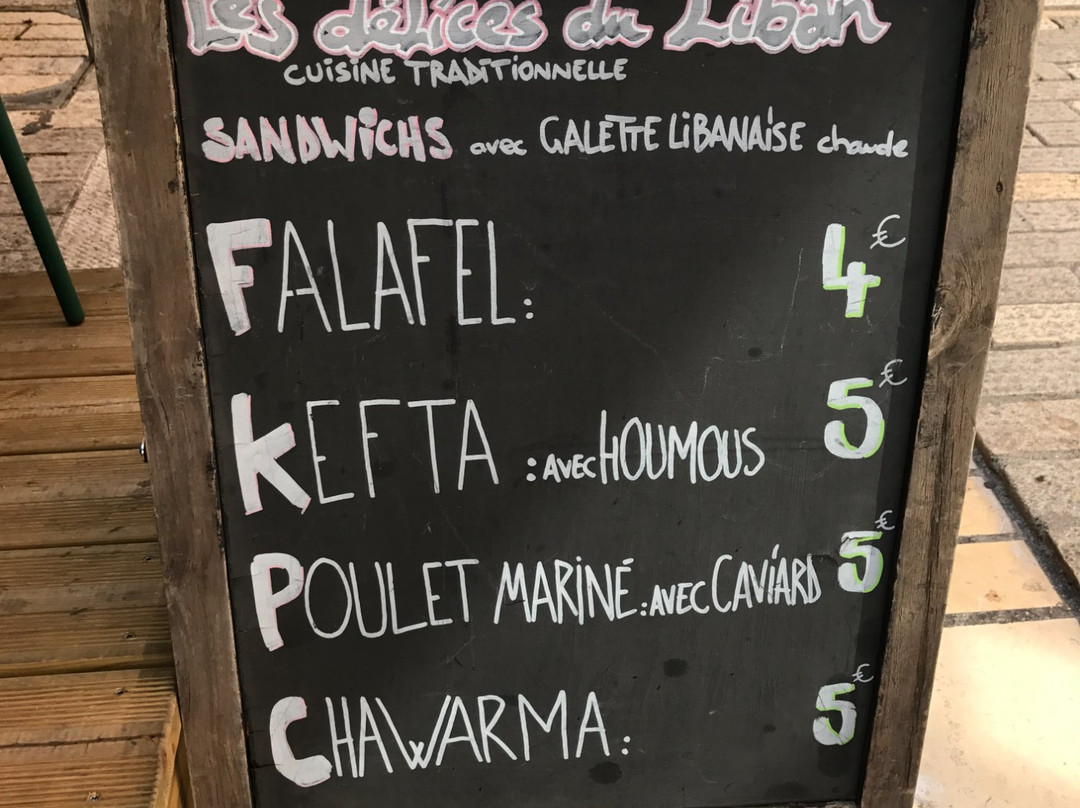 Les délices du Liban
CUISINE TRADITIONNELLE
SANDWICHS avec GALETTE LIBANAISE chaude
FALAFEL: 4€
KEFTA : AVEC HOUMOUS 5€
POULET MARINÉ: AVEC CAVIARD 5€
CHAWARMA: 5€